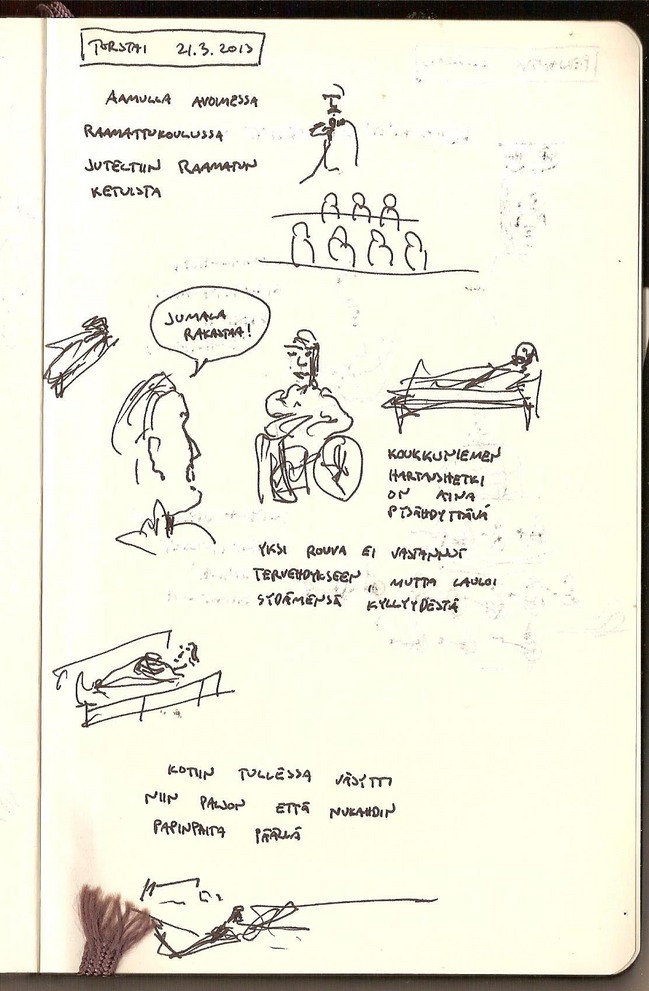 TORSTAI 21.3.2013
AAMULLA AVOIMESSA
RAAMATTUKOULUSSA
JUTELTIIN RAAMATUN
KETUISTA
JUMALA
RAKASTAA!
KOUKKUNIEMEN
HARTAUSHETKI
ON AINA
PYSÄHDYTTÄVÄ
YKSI ROUVA EI VASTANNUT
TERVEHDYKSEEN, MUTTA LAULOI
SYDÄMENSÄ KYLLYYDESTÄ
KOTIIN TULLESSA VÄSYTTI
NIIN PALJON ETTÄ NUKAHDIN
PAPINPAITA PÄÄLLÄ